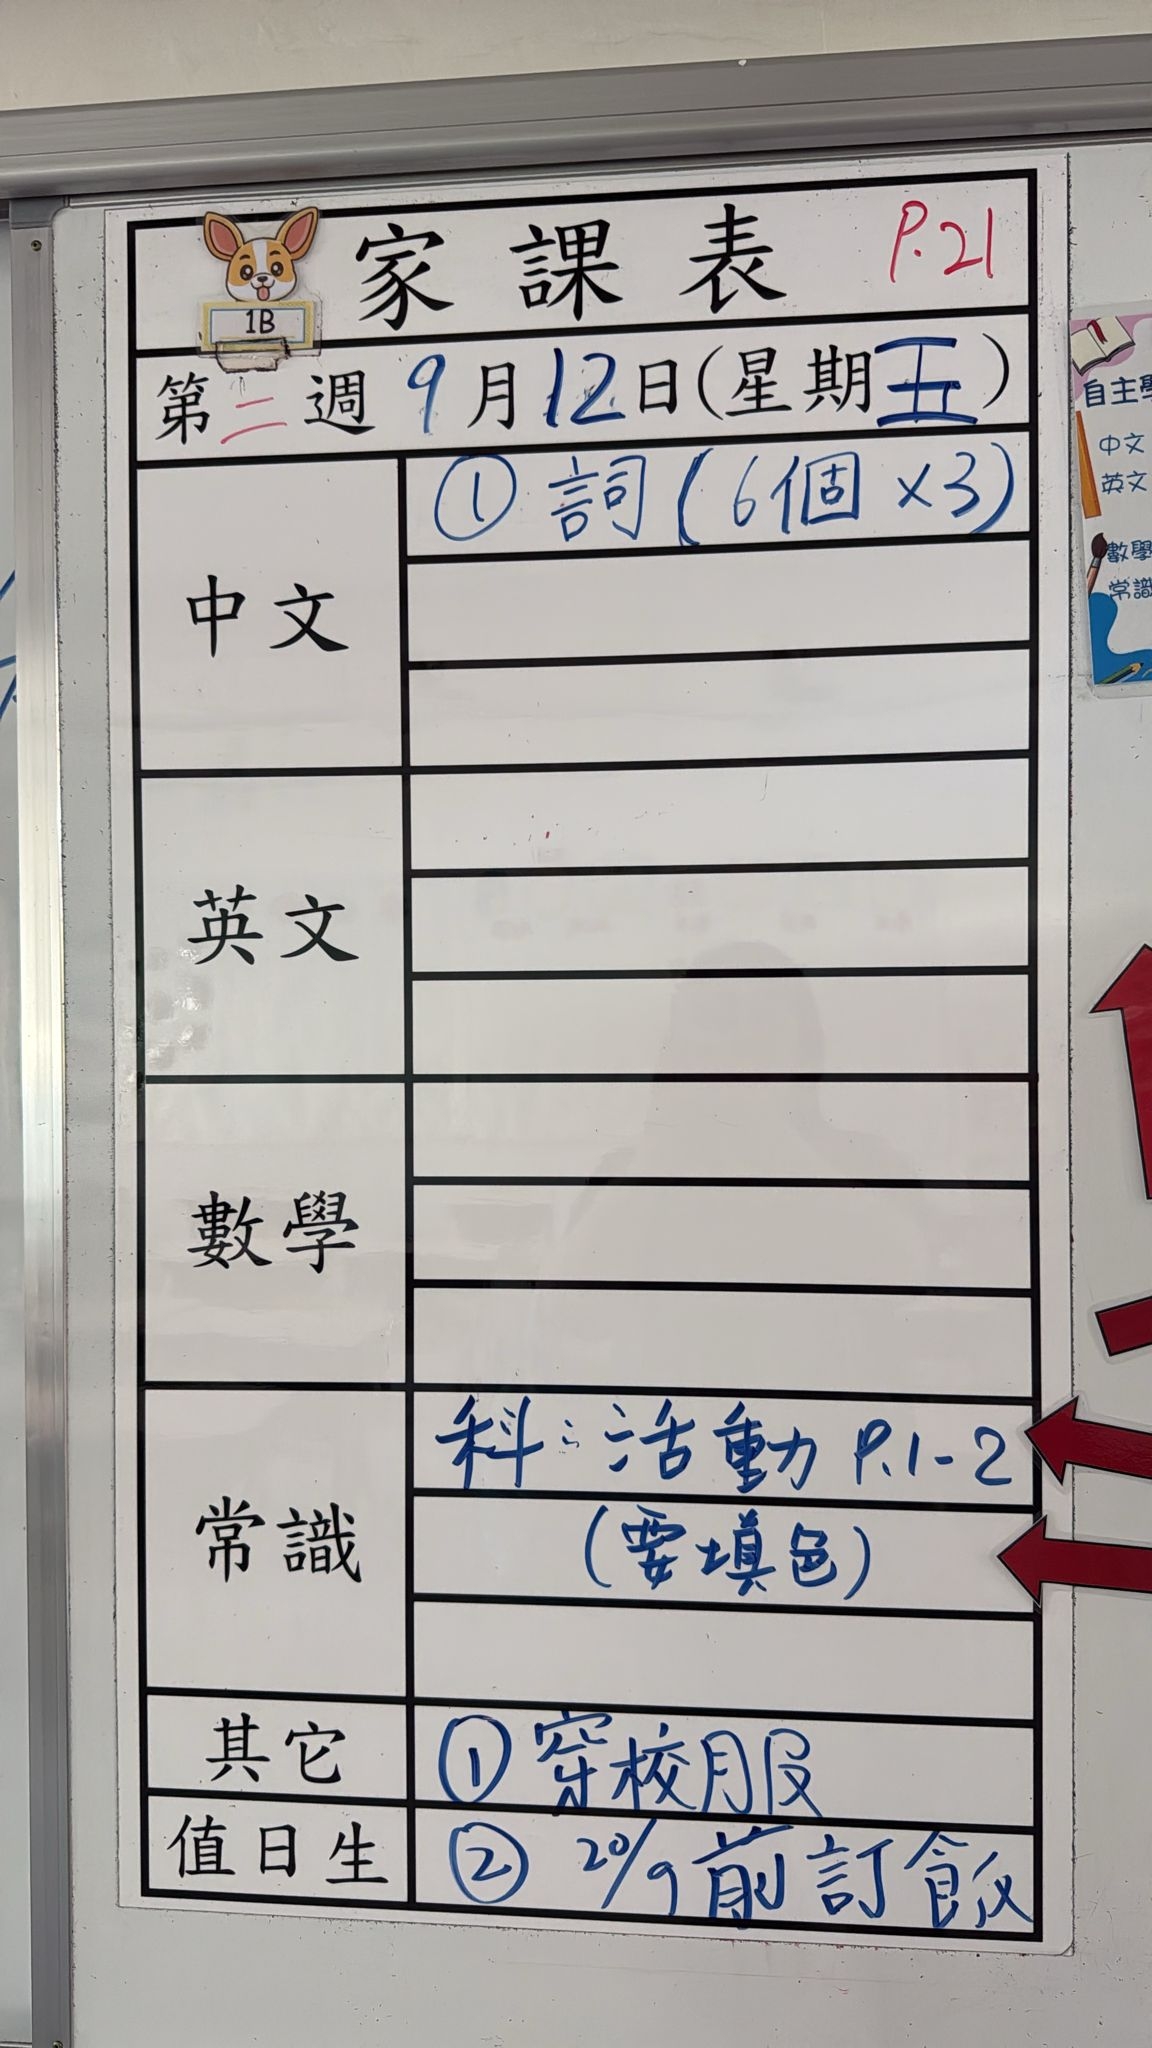 家課表 P.21
1B
第二週 9月12日(星期五)
中文
① 詞 (6個 ×3)
英文
數學
常識
科：活動 P.1-2
(要填色)
其它
① 穿校服
值日生
② 20/9前訂飯
中文
英文
數學